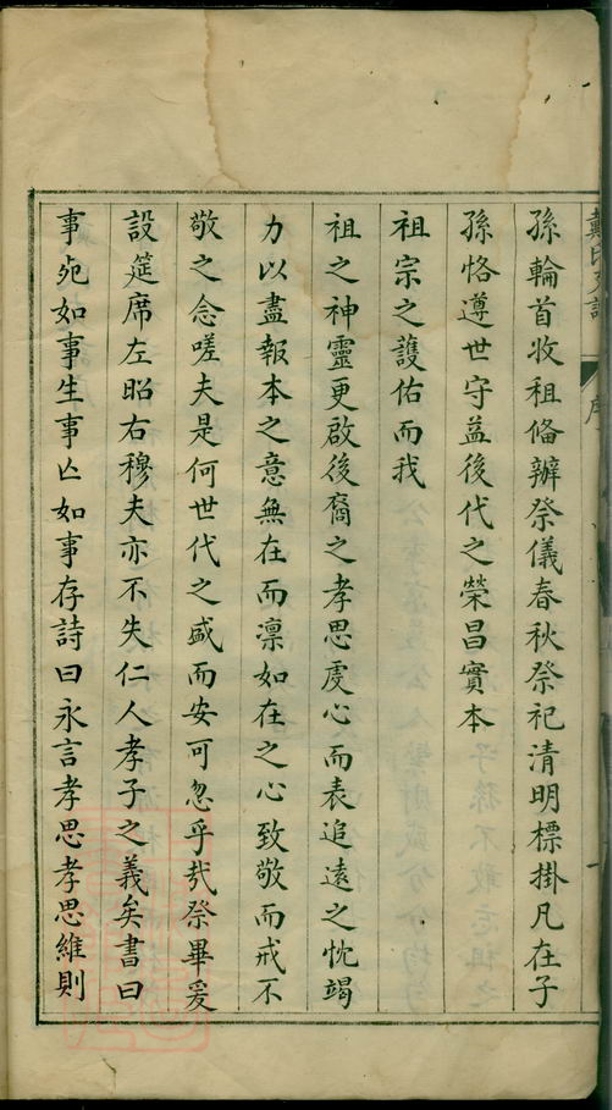 戴氏支譜 序
孫輪首收租俻辦祭儀春秋祭祀清明標掛凡在子
孫恪遵世守益後代之榮昌實本
祖宗之護佑而我
祖之神靈更啟後裔之孝思虔心而表追遠之忱竭
力以盡報本之意無在而凛如在之心致敬而戒不
敬之念嗟夫是何世代之盛而安可忽乎㢤祭畢爰
設筵席左昭右穆夫亦不失仁人孝子之義矣書曰
事死如事生事亾如事存詩曰永言孝思孝思維則